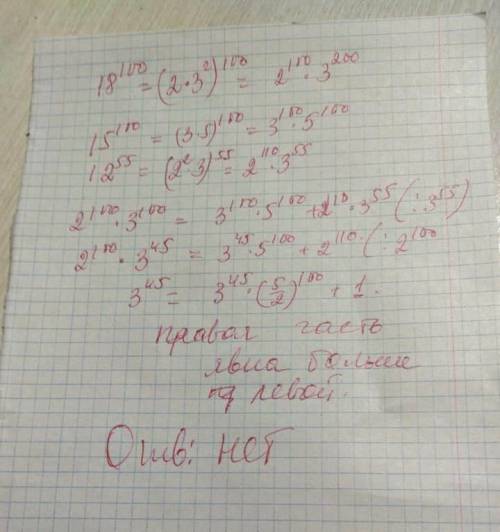 18^100 = (2·3^2)^100 = 2^100 · 3^200
15^100 = (3·5)^100 = 3^100 · 5^100
12^55 = (2^2·3)^55 = 2^110 · 3^55
2^100 · 3^100 = 3^100 · 5^100 + 2^110 · 3^55 (: 3^55)
2^100 · 3^45 = 3^45 · 5^100 + 2^110 · (: 2^100
3^45 = 3^45 · (5/2)^100 + 1.
правая часть
явна больше
левой.
Отв: НЕТ